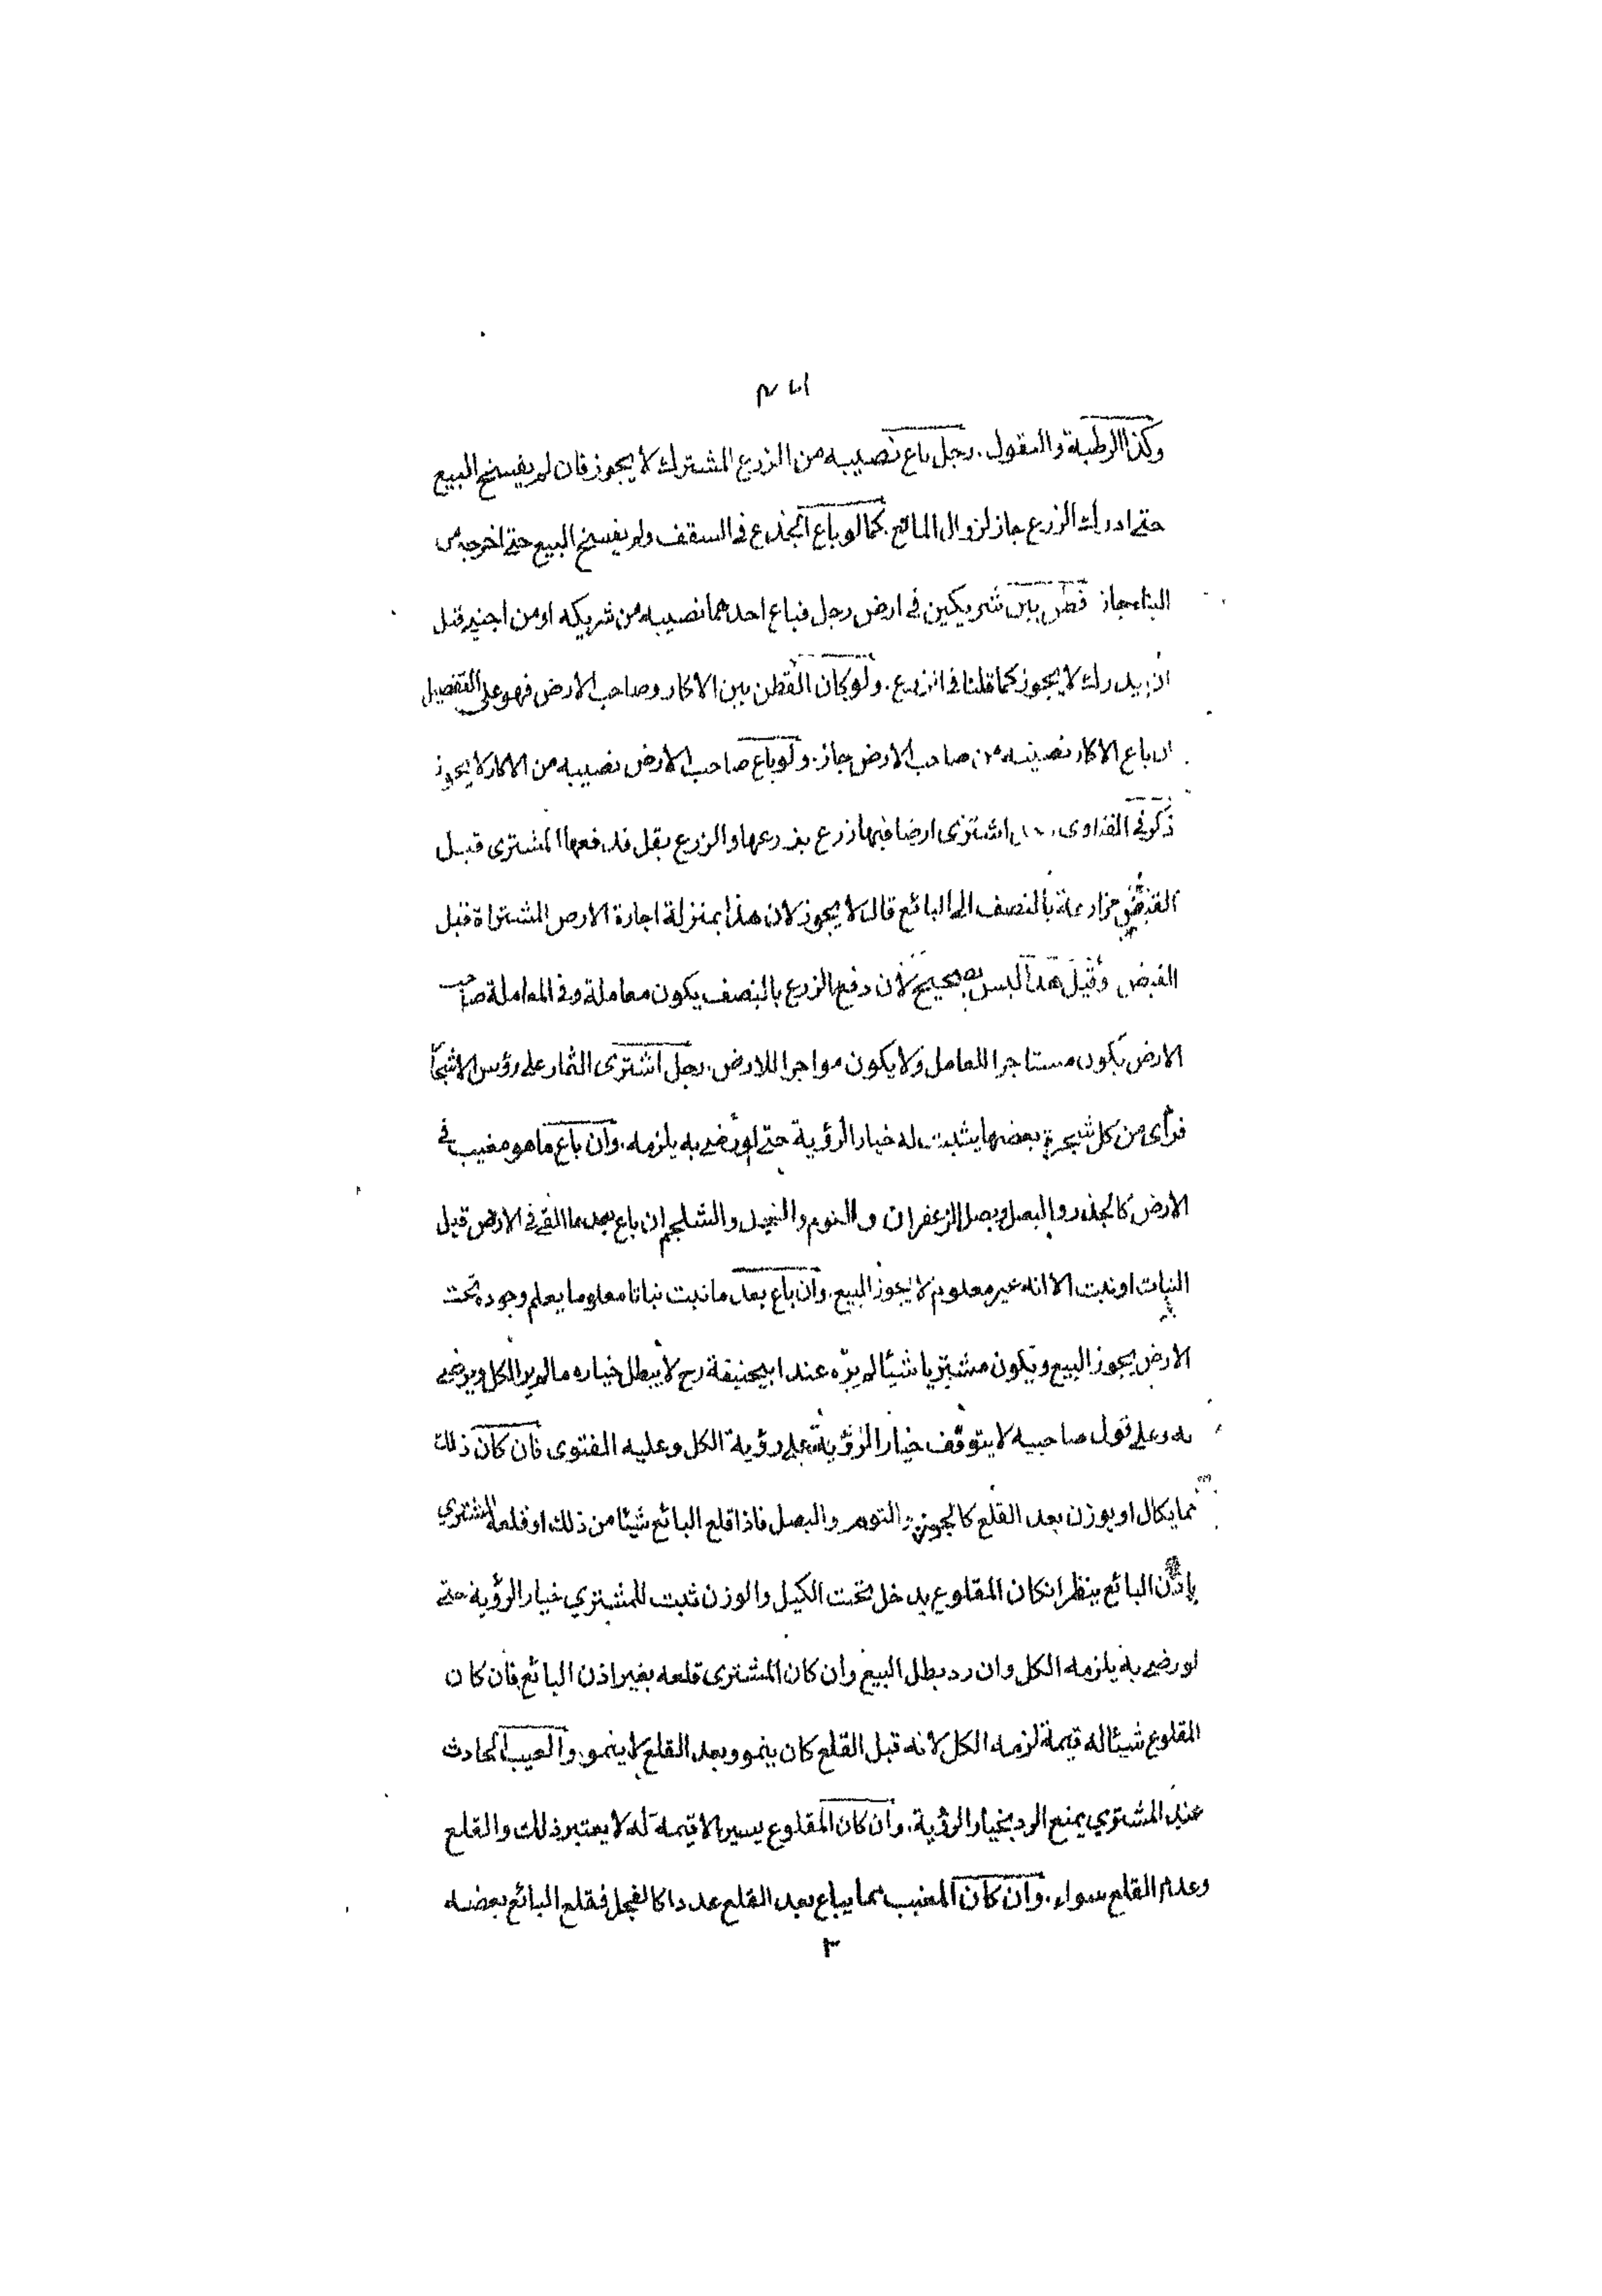 وكذا الرطبة والبقول. رجل باع نصيبه من الزرع المشترك لا يجوز فان لم يفسخ البيع
حتى ادرك الزرع جاز لزوال المانع. كما لو باع الجذع فى السقف ولم يفسخ البيع حتى اخرجه من
البناء جاز قطن بين شريكين فى ارض رجل فباع احدهما نصيبه من شريكه او من اجنبى قبل
ان يدرك لا يجوز كما قلنا فى الزرع. ولو كان القطن بين الاكار وصاحب الارض فهو على التفصيل
ان باع الاكار نصيبه من صاحب الارض جاز. ولو باع صاحب الارض نصيبه من الاكار لا يجوز
ذكر فى الفتاوى. اشترى ارضا فيها زرع بزرعها والزرع بقل فدفعها المشترى قبل
القبض مزارعة بالنصف الى البائع قال لا يجوز لان هذا بمنزلة اجارة الارض المشتراة قبل
القبض وقيل هذا ليس بصحيح لان دفع الزرع بالنصف يكون معاملة وفى المعاملة صاحب
الارض يكون مستاجرا للعامل ولا يكون مواجرا للارض. رجل اشترى الثمار على رؤس الاشجار
فرأى من كل شجرة بعضها يثبت له خيار الرؤية حتى لو رضى به يلزمه. وان باع ما هو مغيب فى
الارض كالجذر والبصل وبصل الزعفران والثوم والفجل والشلجم ان باع بعد ما القى فى الارض قبل
النبات او نبت الا انه غير معلوم لا يجوز البيع. وان باع بعد ما نبت نباتا معلوما يعلم وجوده تحت
الارض يجوز البيع ويكون مشتريا شيئا لم يره عند ابيحنيفة رح لا يبطل خياره ما لم ير الكل ويرضى
به وعلى قول صاحبيه لا يتوقف خيار الرؤية على رؤية الكل وعليه الفتوى فان كان ذلك
مما يكال او يوزن بعد القلع كالجزر والثوم والبصل فاذا قلع البائع شيئا من ذلك او قلعه المشتري
باذن البائع ينظر انكان المقلوع يدخل تحت الكيل والوزن ثبت للمشتري خيار الرؤية حتى
لو رضى به يلزمه الكل وان رد بطل البيع وان كان المشترى قلعه بغير اذن البائع فان كان
المقلوع شيئا له قيمة لزمه الكل لانه قبل القلع كان ينمو وبعد القلع لا ينمو. والعيب الحادث
عند المشتري يمنع الرد بخيار الرؤية. وان كان المقلوع يسيرا لا قيمة له لا يعتبر ذلك والقلع
وعدم القلع سواء. وان كان المغيب مما يباع بعد القلع عددا كالفجل فقلع البائع بعضه